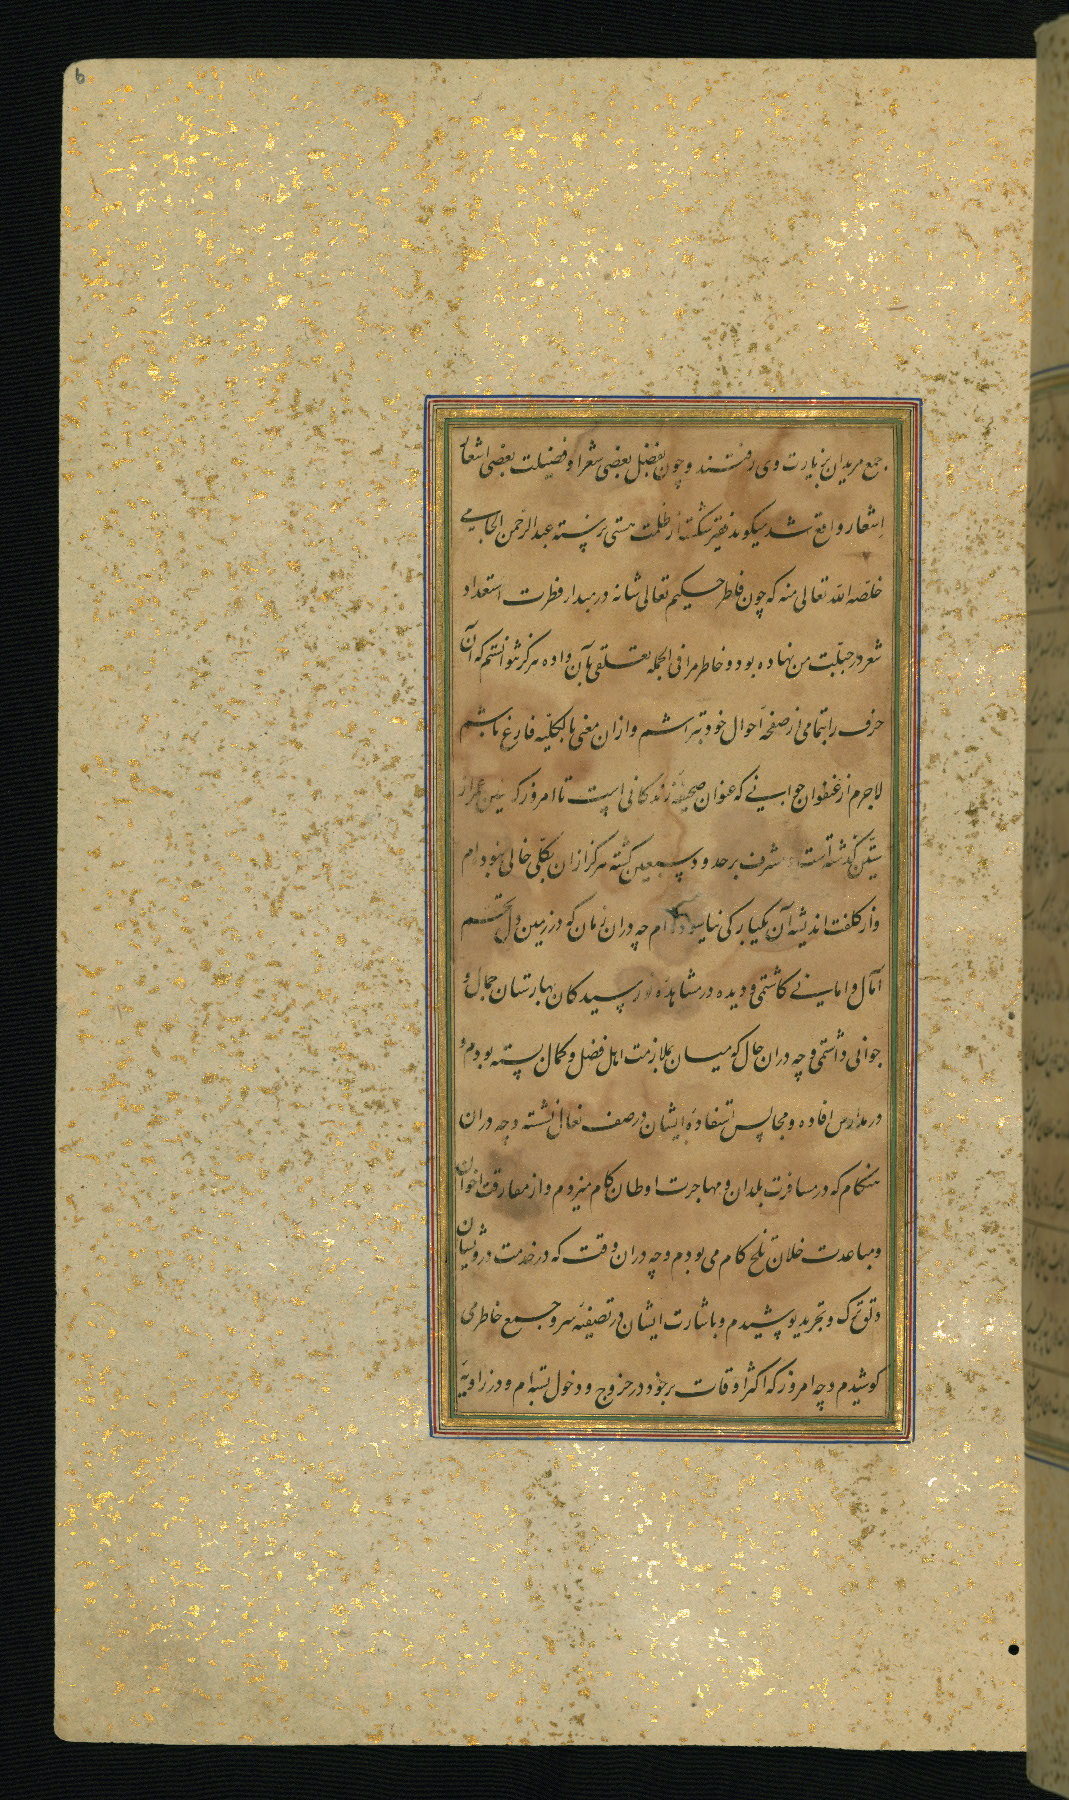 جمع مریدان بزیارت وی رفتند و چون بفضل بعضی شعرا و فضیلت بعضی اشعار
اشعار واقع شد میگوید فقیر شکسته از ظلمت هستی رسته عبدالرحمن الجامی
خلصه الله تعالی منه که چون فاطر حکیم تعالی شانه در مبدا فطرت استعداد
شعر در جبلت من نهاده بود و خاطر مرا فی الجمله تعلقی بآن داده هرگز نتوانستم که آن
حرف را بتمامی از صفحه احوال خود بتراشم و از ان معنی بالکلیه فارغ باشم
لاجرم از عنفوان جوانی که عنوان صحیفه زندگانی است تا امروز که سنین عمر از
ستین گذشته است و مشرف بر حدود سبعین گشته هرگز ازان بکلی خالی نبوده ام
و از کلفت اندیشه آن بیکبارگی نیاسوده ام چه دران زمان که در زمین دل تخم
آمال و امانی کاشتمی و دیده در مشاهده نورسیدگان بهارستان جمال و
جوانی داشتمی و چه دران حال که میان بملازمت اهل فضل و کمال بسته بودم و
در مدارس افاده و مجالس استفاده ایشان در صف نعال نشسته و چه دران
هنگام که در مسافرت بلدان و مهاجرت اوطان گام میزدم و از مفارقت اخوان
و مباعدت خلان تلخ کام می بودم و چه دران وقت که در خدمت درویشان
دلق ترک و تجرید پوشیدم و باشارت ایشان در تصفیه سر و جمع خاطر می
کوشیدم و چه امروز که اکثر اوقات بر خود در خروج و دخول بسته ام و در زاویه
6